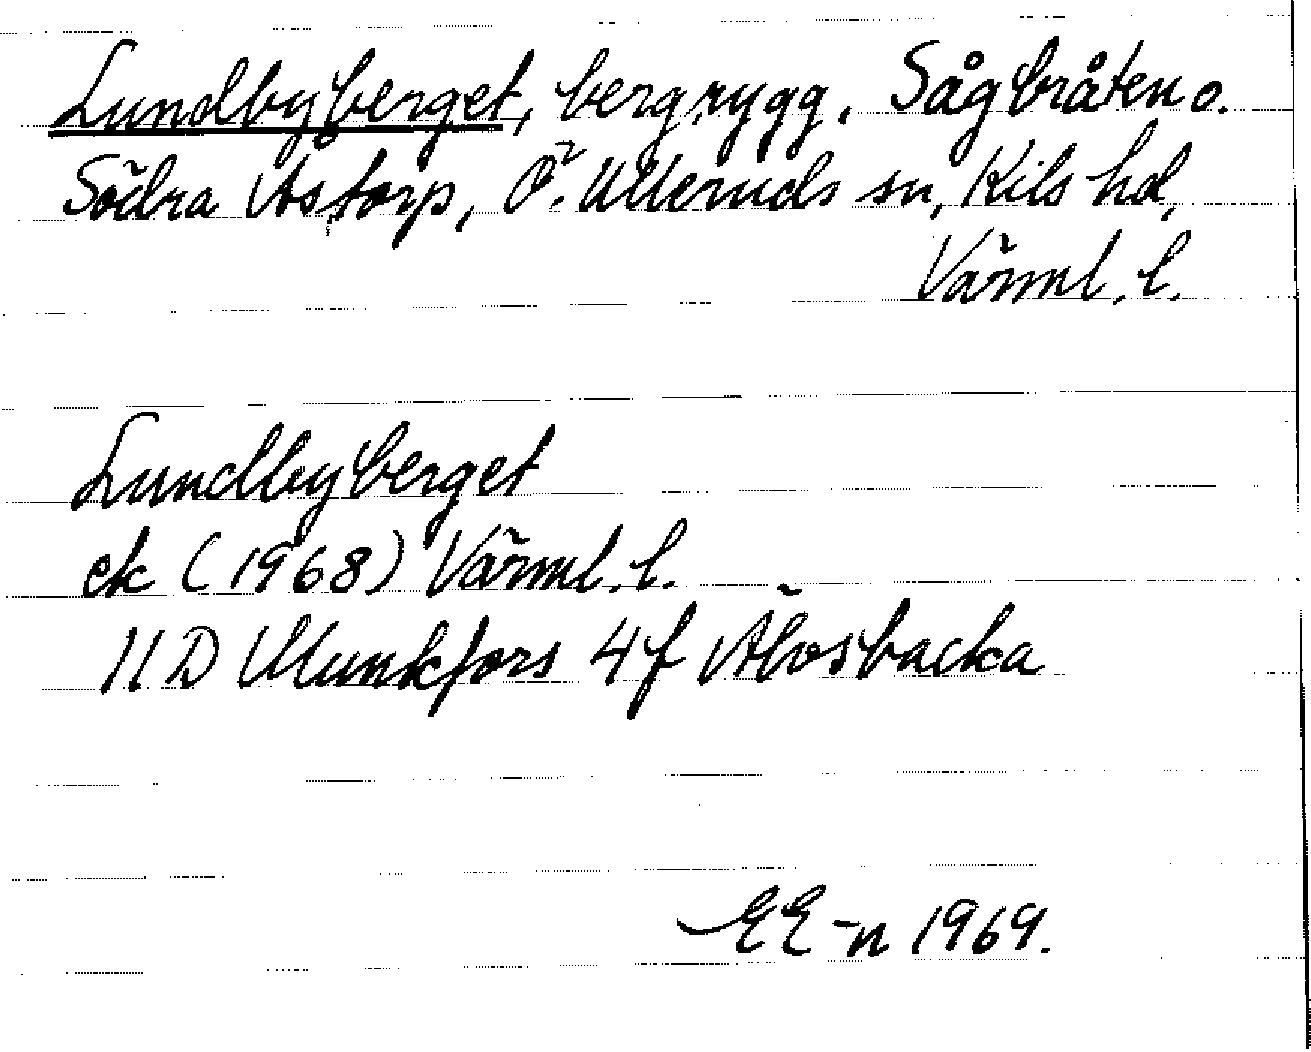 Lundbyberget, bergrygg, Sågbråten o.
Södra Åstorp, Ö. Ulleruds sn, Kils hd,
Värml. l.
Lundbyberget
ek (1968) Värml. l.
11D Munkfors 4f Älvsbacka
EE-n 1969.